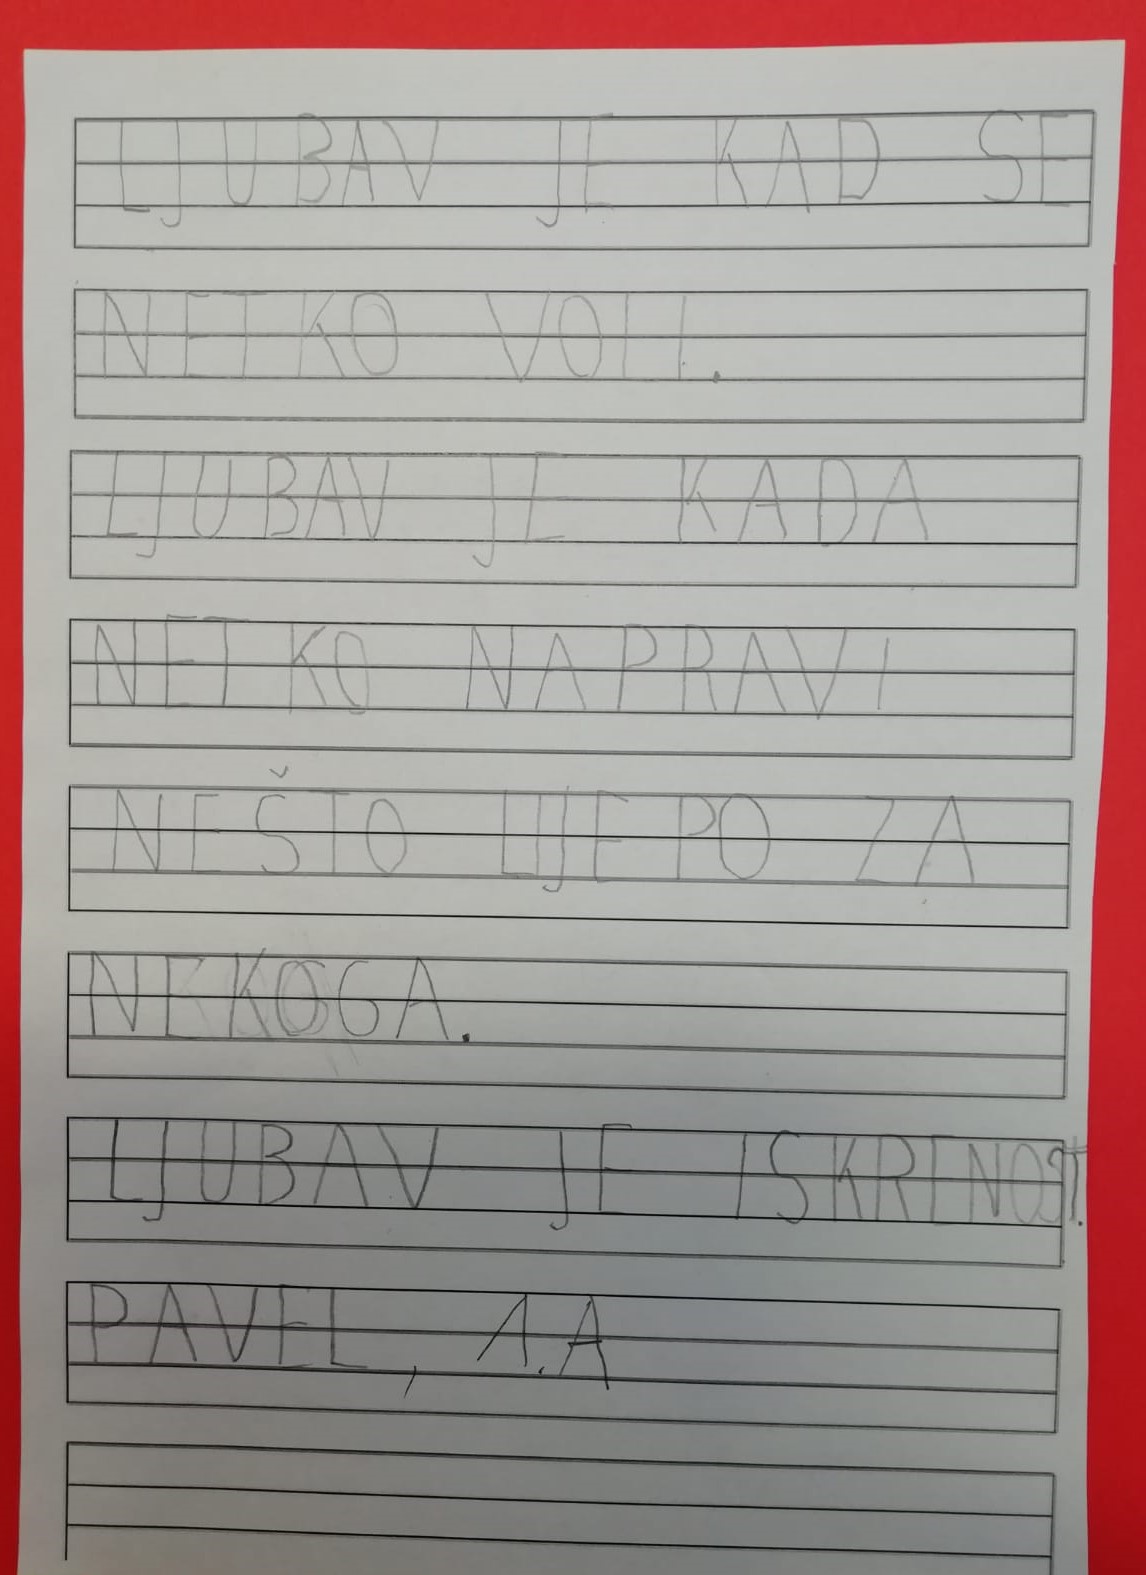 LJUBAV JE KAD SE
NETKO VOLI.
LJUBAV JE KADA
NETKO NAPRAVI
NEŠTO LIJEPO ZA
NEKOGA.
LJUBAV JE ISKRENOST.
PAVEL, 1.A